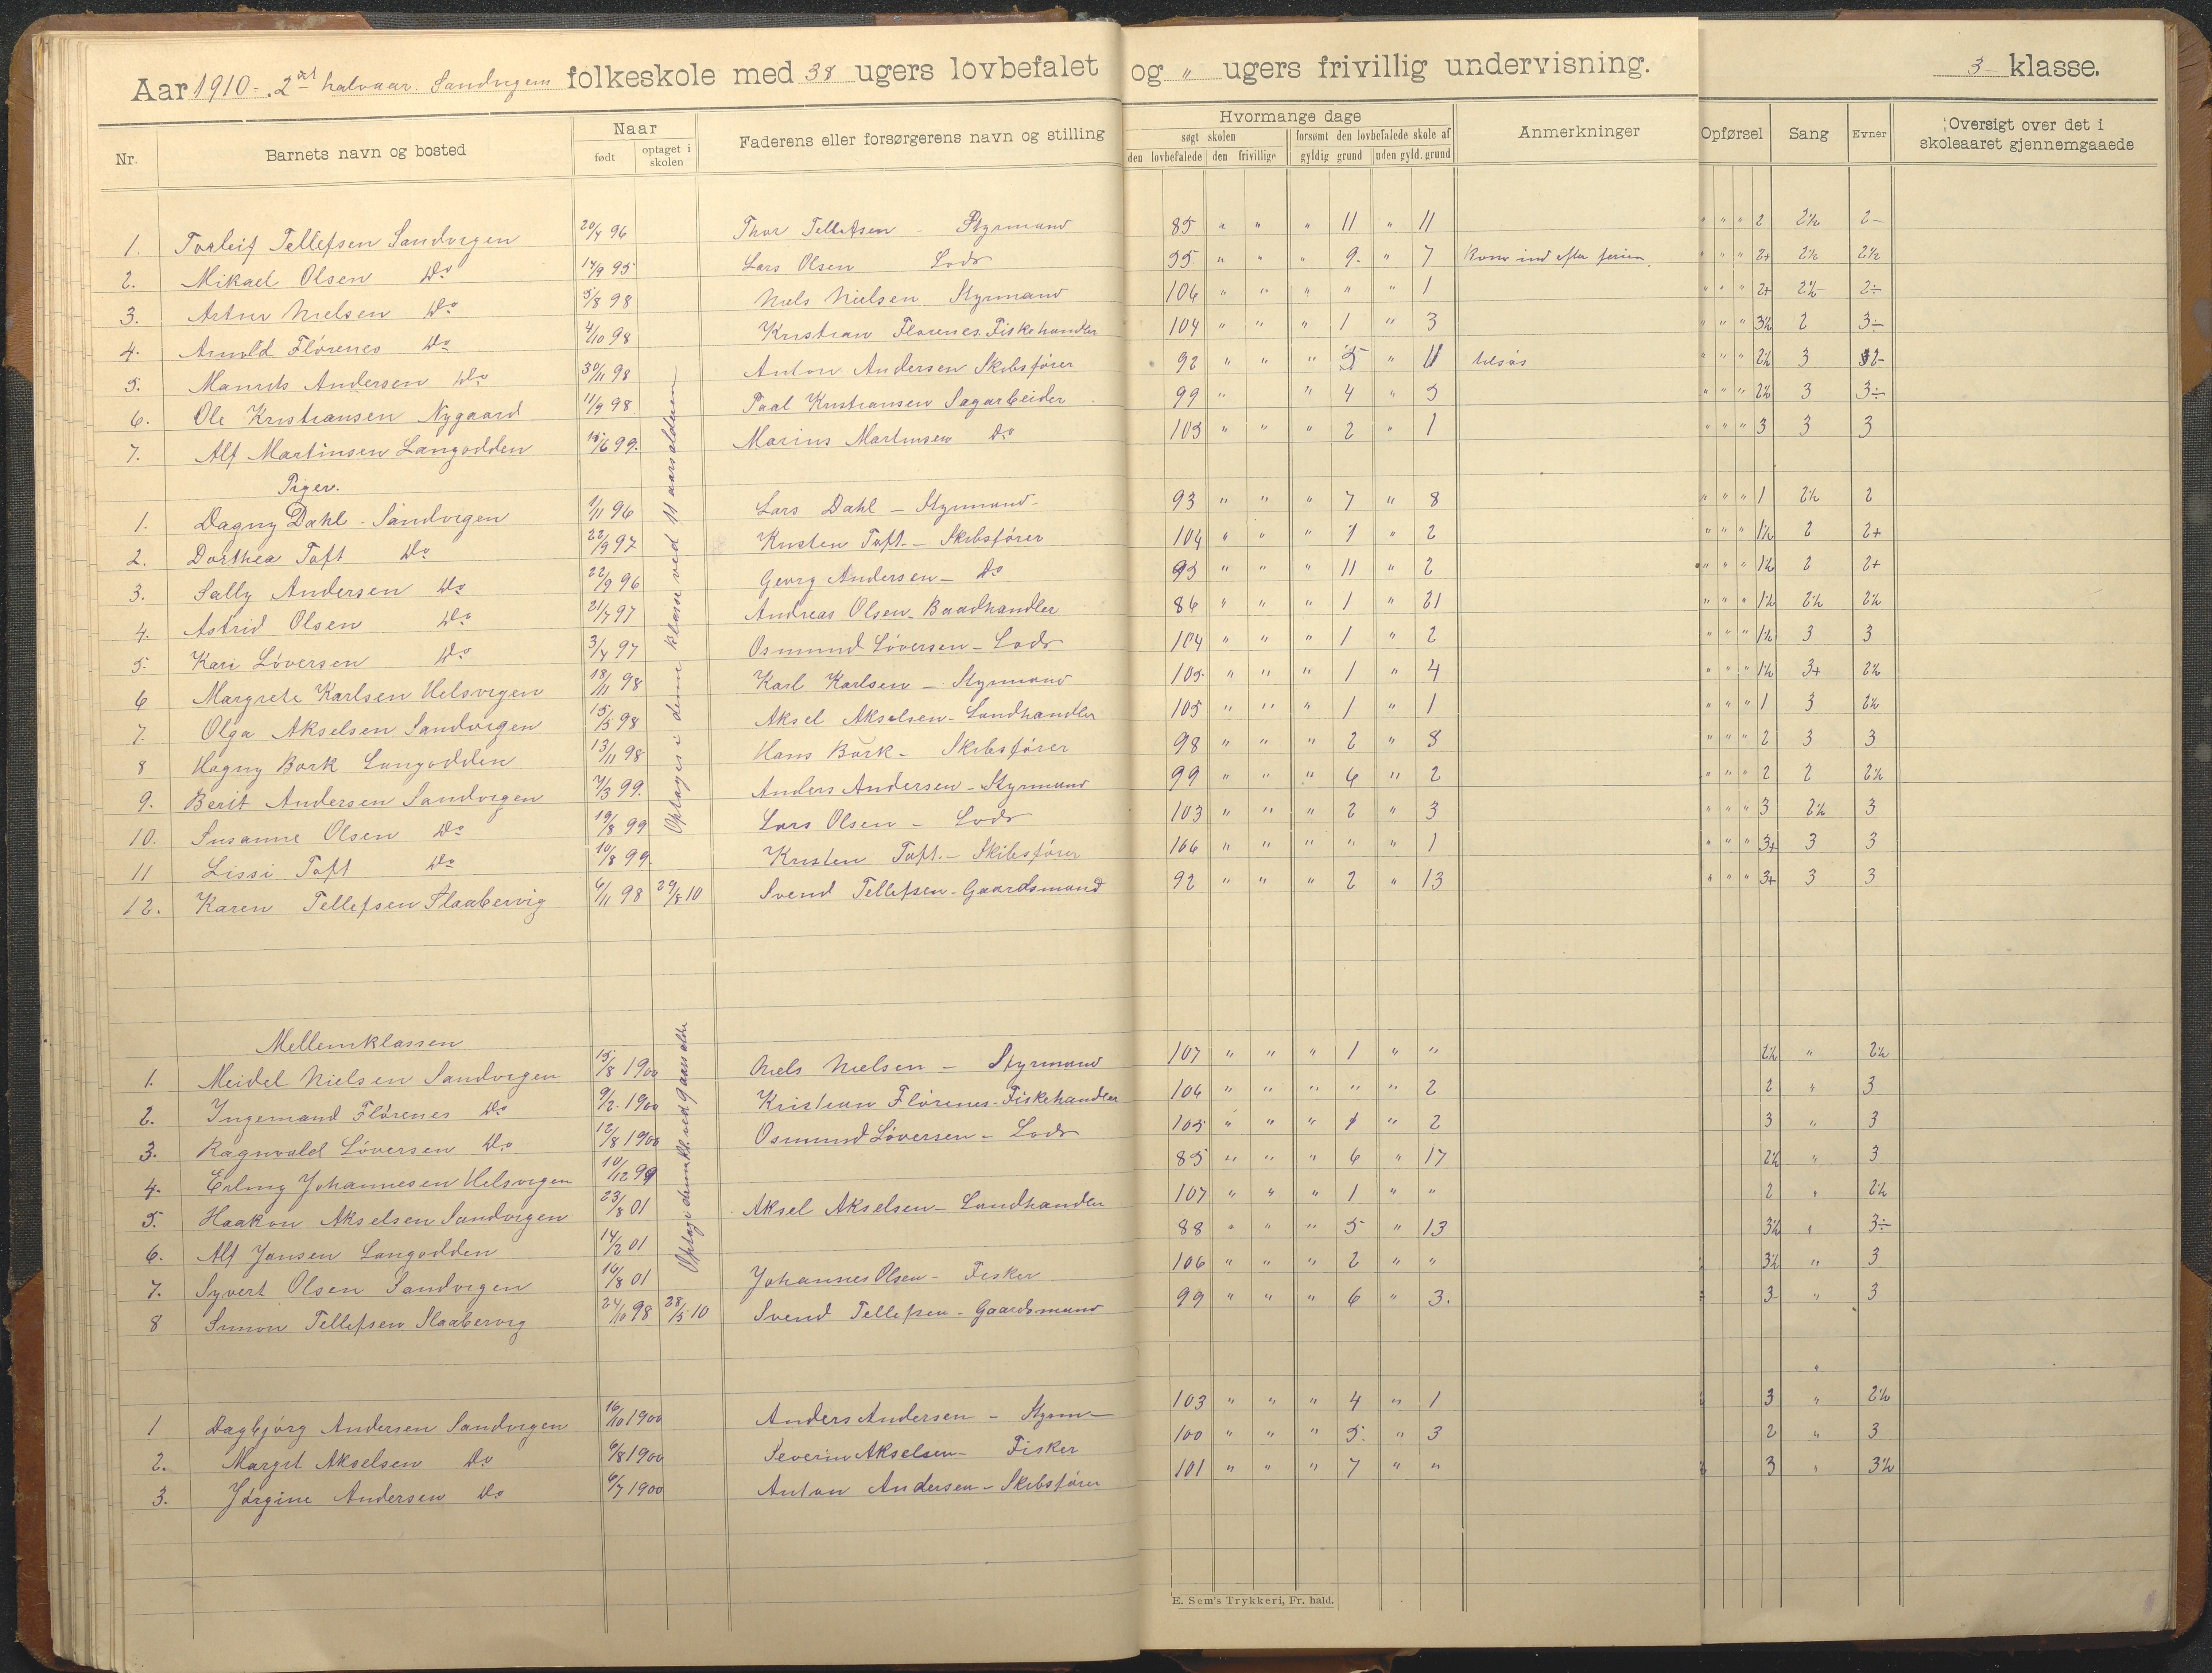 Aar 1910 - 2det halvaar. Sandvigens folkeskole med 38 ugers lovbefalet og " ugers frivillig undervisning. 3 klasse.
Nr. Barnets navn og bosted Naar født optaget i skolen Faderens eller forsørgerens navn og stilling Hvormange dage søgt skolen den lovbefalede den frivillige forsømt den lovbefalede skole af gyldig grund uden gyld. grund Anmerkninger Opførsel Sang Evner Oversigt over det i skoleaaret gjennemgaaede
1. Torleif Tellefsen Sandvigen 20/4 96 Thor Tellefsen - Styrmand 85 " " " 11 " 11 " " " 2 2½ 2-
2. Mikael Olsen Do 14/9 95 Lars Olsen Lods 35 " " " 9. " 7 Kom ind efter ferien. " " " 2+ 2½ 2½
3. Artur Nielsen Do 5/8 98 Niels Nielsen Styrmand 106 " " " " " 1 " " " 2+ 2½- 2÷
4. Arnold Flørenes Do 4/10 98 Kristian Florenes. Fiskehandler 104 " " " 1 " 3 " " " 3½ 2 3÷
5. Andersen Do 30/11 98 Anton Andersen Skibsfører 92 " " " 5 " 11 tilsøs " " " 2½ 3 2-
6. Ole Kristiansen Nygaard 11/9 98 Paal Kristiansen Sagarbeider 99 " " 4 " 5 " " " 2½ 3 3÷
7. Alf Martinsen Langodden 15/6 99. Marius Martinsen Do 105 " " " 2 " 1 " " " 3 3 3
Piger.
1. Dagny Dahl - Sandvigen 1/11 96 Lars Dahl - Styrmand - 93 " " " 7 " 8 " " " 1 2½ 2
2. Dorthea Toft Do 22/9 97 Kristen Toft. - Skibsfører 104 " " " 1 " 2 " " " 1½ 2 2+
3. Sally Andersen Do 22/9 96 Georg Andersen - Do 95 " " " 11 " 2 " " " 1½ 2 2+
4. Astrid Olsen Do 21/7 97 Andreas Olsen - Baadhandler 86 " " " 1 " 21 " " " 1½ 2½ 2½
5. Kari Løversen Do 3/4 97 Osmund Løversen - Lods 104 " " " 1 " 2 " " " 1½ 3 3
6 Margrete Karlsen Helsvigen 18/11 98 Karl Karlsen - Styrmand 105. " " " 1 " 4 " " " 1½ 3+ 2½
7. Olga Akselsen Sandvigen 15/5 98 Aksel Akselsen - Landhandler 105 " " " 1 " 1 " " " 1 3 2½
8 Hagny Bork Langodden 13/11 98 Hans Bork - Skibsfører 98 " " " 2 " 8 " " " 2 3 3
9. Berit Andersen Sandvigen 7/3 99. Anders Andersen - Styrmand 99 " " " 6 " 2 " " " 2 2 2½
10. Susanne Olsen Do 19/8 99 Lars Olsen - Lods 103 " " " 2 " 3 " " " 3 2½ 3
11 Lissi Toft Do 10/8 99. Kristen Toft. - Skibsfører 106 " " " " " 1 " " " 3+ 3 3
12. Karen Tellefsen Slaabervig 6/11 98 29/8 10 Svend Tellefsen - Gaardsmand 92 " " " 2 " 13 " " " 3+ 3 3
Optaget i denne klasse ved 11 aars alderen
Mellemklassen
1. Meidel Nielsen Sandvigen 15/8 1900 Niels Nielsen - Styrmand 107 " " " 1 " " 2½ " 2½
2. Ingemand Flørenes Do 9/2. 1900 Kristian Flørenes - Fiskehandler 106 " " " " " 2 2 " 3
3. Ragnvald Løversen Do 12/8 1900 Osmund Løversen - Lods 105 " " " 1 " 2 3 " 3
4. Erling Johannesen Helsvigen 10/12 99 85 " " " 6 " 17 2½ " 3
5. Haakon Akselsen Sandvigen 23/8 01 Aksel Akselsen - Landhandler 107 " " " 1 " " 2 " 2½
6. Alf Jansen Langodden 14/2 01 88 " " " 5 " 13 3½ " 3÷
7. Syvert Olsen Sandvigen 10/8 01 Johannes Olsen - Fisker 106 " " " 2 " " 3½ " 3
8 Simon Tellefsen Slaabervig 24/10 98 28/5 10 Svend Tellefsen - Gaardsmand 99 " " " 6 " 3. 3 " 3
"
1 Dagbjørg Andersen Sandvigen 16/10 1900 Anders Andersen - Styrm 103 " " " 4 " 1 3 " 2½
2. Margit Akselsen Do 6/8 1900 Severin Akselsen - Fisker 100 " " " 5. " 3 2 " 3
3. Jørgine Andersen Do 6/7 1900 Anton Andersen - Skibsfører 101 " " " 7 " " 3 " 3½
E. Sem's Trykkeri, Fr. hald.